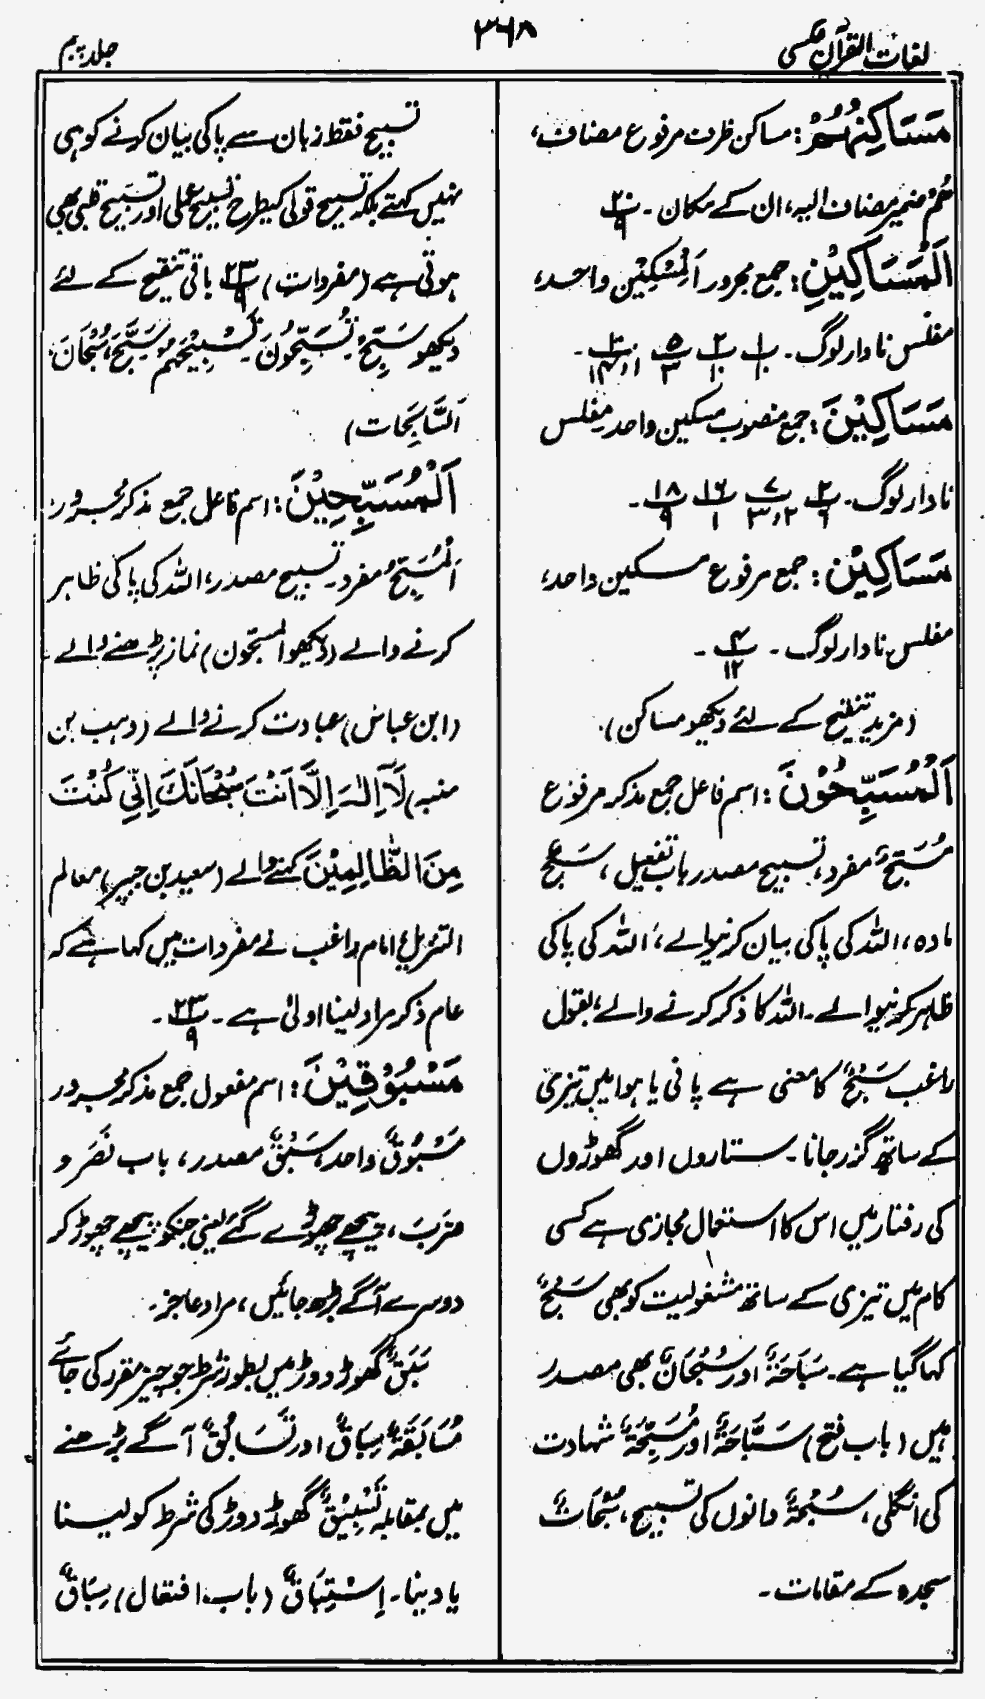 لغات القرآن عکسی
۳۶۸
جلد پنجم
مَسَاکِنُهُمْ: مساکن ظرف مرفوع مضاف،
ھُمْ ضمیر مضاف الیہ، ان کے مکان۔ ۲۰/۹
اَلْمَسَاکِیْنِ: جمع مجرور اَلْمِسْکِیْن واحد،
مفلس نادار لوگ۔ ۱/۱۰ ۲/۱۰ ۵/۳
مَسَاکِیْنَ: جمع منصوب مسکین واحد مفلس
نادار لوگ۔ ۲/۶ ۷/۳،۲ ۱۶/۱ ۱۸/۹۔
مَسَاکِیْن: جمع مرفوع مسکین واحد،
مفلس نادار لوگ۔ ۴/۱۲۔
(مزید تنقیح کے لئے دیکھو مساکن)۔
اَلْمُسَبِّحُوْنَ: اسم فاعل جمع مذکر مرفوع
مُسَبِّحٌ مفرد، تسبیح مصدر باب تفعیل، سَبْحٌ
مادہ، اللہ کی پاکی بیان کرنیوالے، اللہ کی پاکی
ظاہر کرنیوالے۔ اللہ کا ذکر کرنے والے، بقول
راغب سَبْحٌ کا معنی ہے پانی یا ہوا میں تیزی
کے ساتھ گزر جانا۔ ستاروں اور گھوڑوں
کی رفتار میں اس کا استعمال مجازی ہے کسی
کام میں تیزی کے ساتھ مشغولیت کو بھی سَبْحٌ
کہا گیا ہے۔ سَبَاحَۃٌ اور سُبْحَانٌ بھی مصدر
ہیں (باب فتح) سَبَّاحَۃٌ اور مُسَبِّحَۃٌ شہادت
کی انگلی، سُبْحَۃٌ دانوں کی تسبیح، سُبُحَاتٌ
سجدہ کے مقامات۔
تسبیح فقط زبان سے پاکی بیان کرنے کو ہی
نہیں کہتے بلکہ تسبیح قولی کیطرح تسبیح عملی اور تسبیح قلبی بھی
ہوتی ہے (مفردات) ۲۳/۹ باقی تنقیح کے لئے
دیکھو سَبِّحْ۔ تُسَبِّحُونَ۔ تَسْبِیْحَهُم سَبَّحَ، سُبْحَانَ،
اَلسَّابِحَات)
اَلْمُسَبِّحِیْنَ: اسم فاعل جمع مذکر مجرور
اَلْمُسَبِّحُ مفرد۔ تسبیح مصدر، اللہ کی پاکی ظاہر
کرنے والے (دیکھو المسبّحون) نماز پڑھنے والے
(ابن عباس) عبادت کرنے والے (وہب بن
منبہ) لَآ اِلٰہَ اِلَّا اَنْتَ سُبْحَانَکَ اِنِّی کُنْتَ
مِنَ الظَّالِمِیْنَ کہنے والے (سعید بن جبیر) معالم
التنزیل) امام راغب نے مفردات میں کہا ہے کہ
عام ذکر مراد لینا اولیٰ ہے۔ ۲۳/۹۔
مَسْبُوْقِیْنَ: اسم مفعول جمع مذکر مجرور
مَسْبُوْقٌ واحد، سَبْقٌ مصدر، باب نَصَرَ و
ضَرَبَ، پیچھے چھوڑے گئے یعنی جنکو پیچھے چھوڑ کر
دوسرے آگے بڑھ جائیں، مراد عاجز۔
سَبَقٌ گھوڑ دوڑ میں بطور شرط جو چیز مقرر کی جائے
مُسَابَقَۃٌ سِبَاقٌ اور تَسَابُقٌ آگے بڑھنے
میں مقابلہ تَسْبِیْقٌ گھوڑ دوڑ کی شرط کو لینا
یا دینا۔ اِسْتِبَاقٌ (باب افتعال) سِبَاقٌ